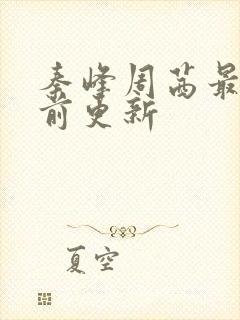 秦峰周茜最
前更新
夏空